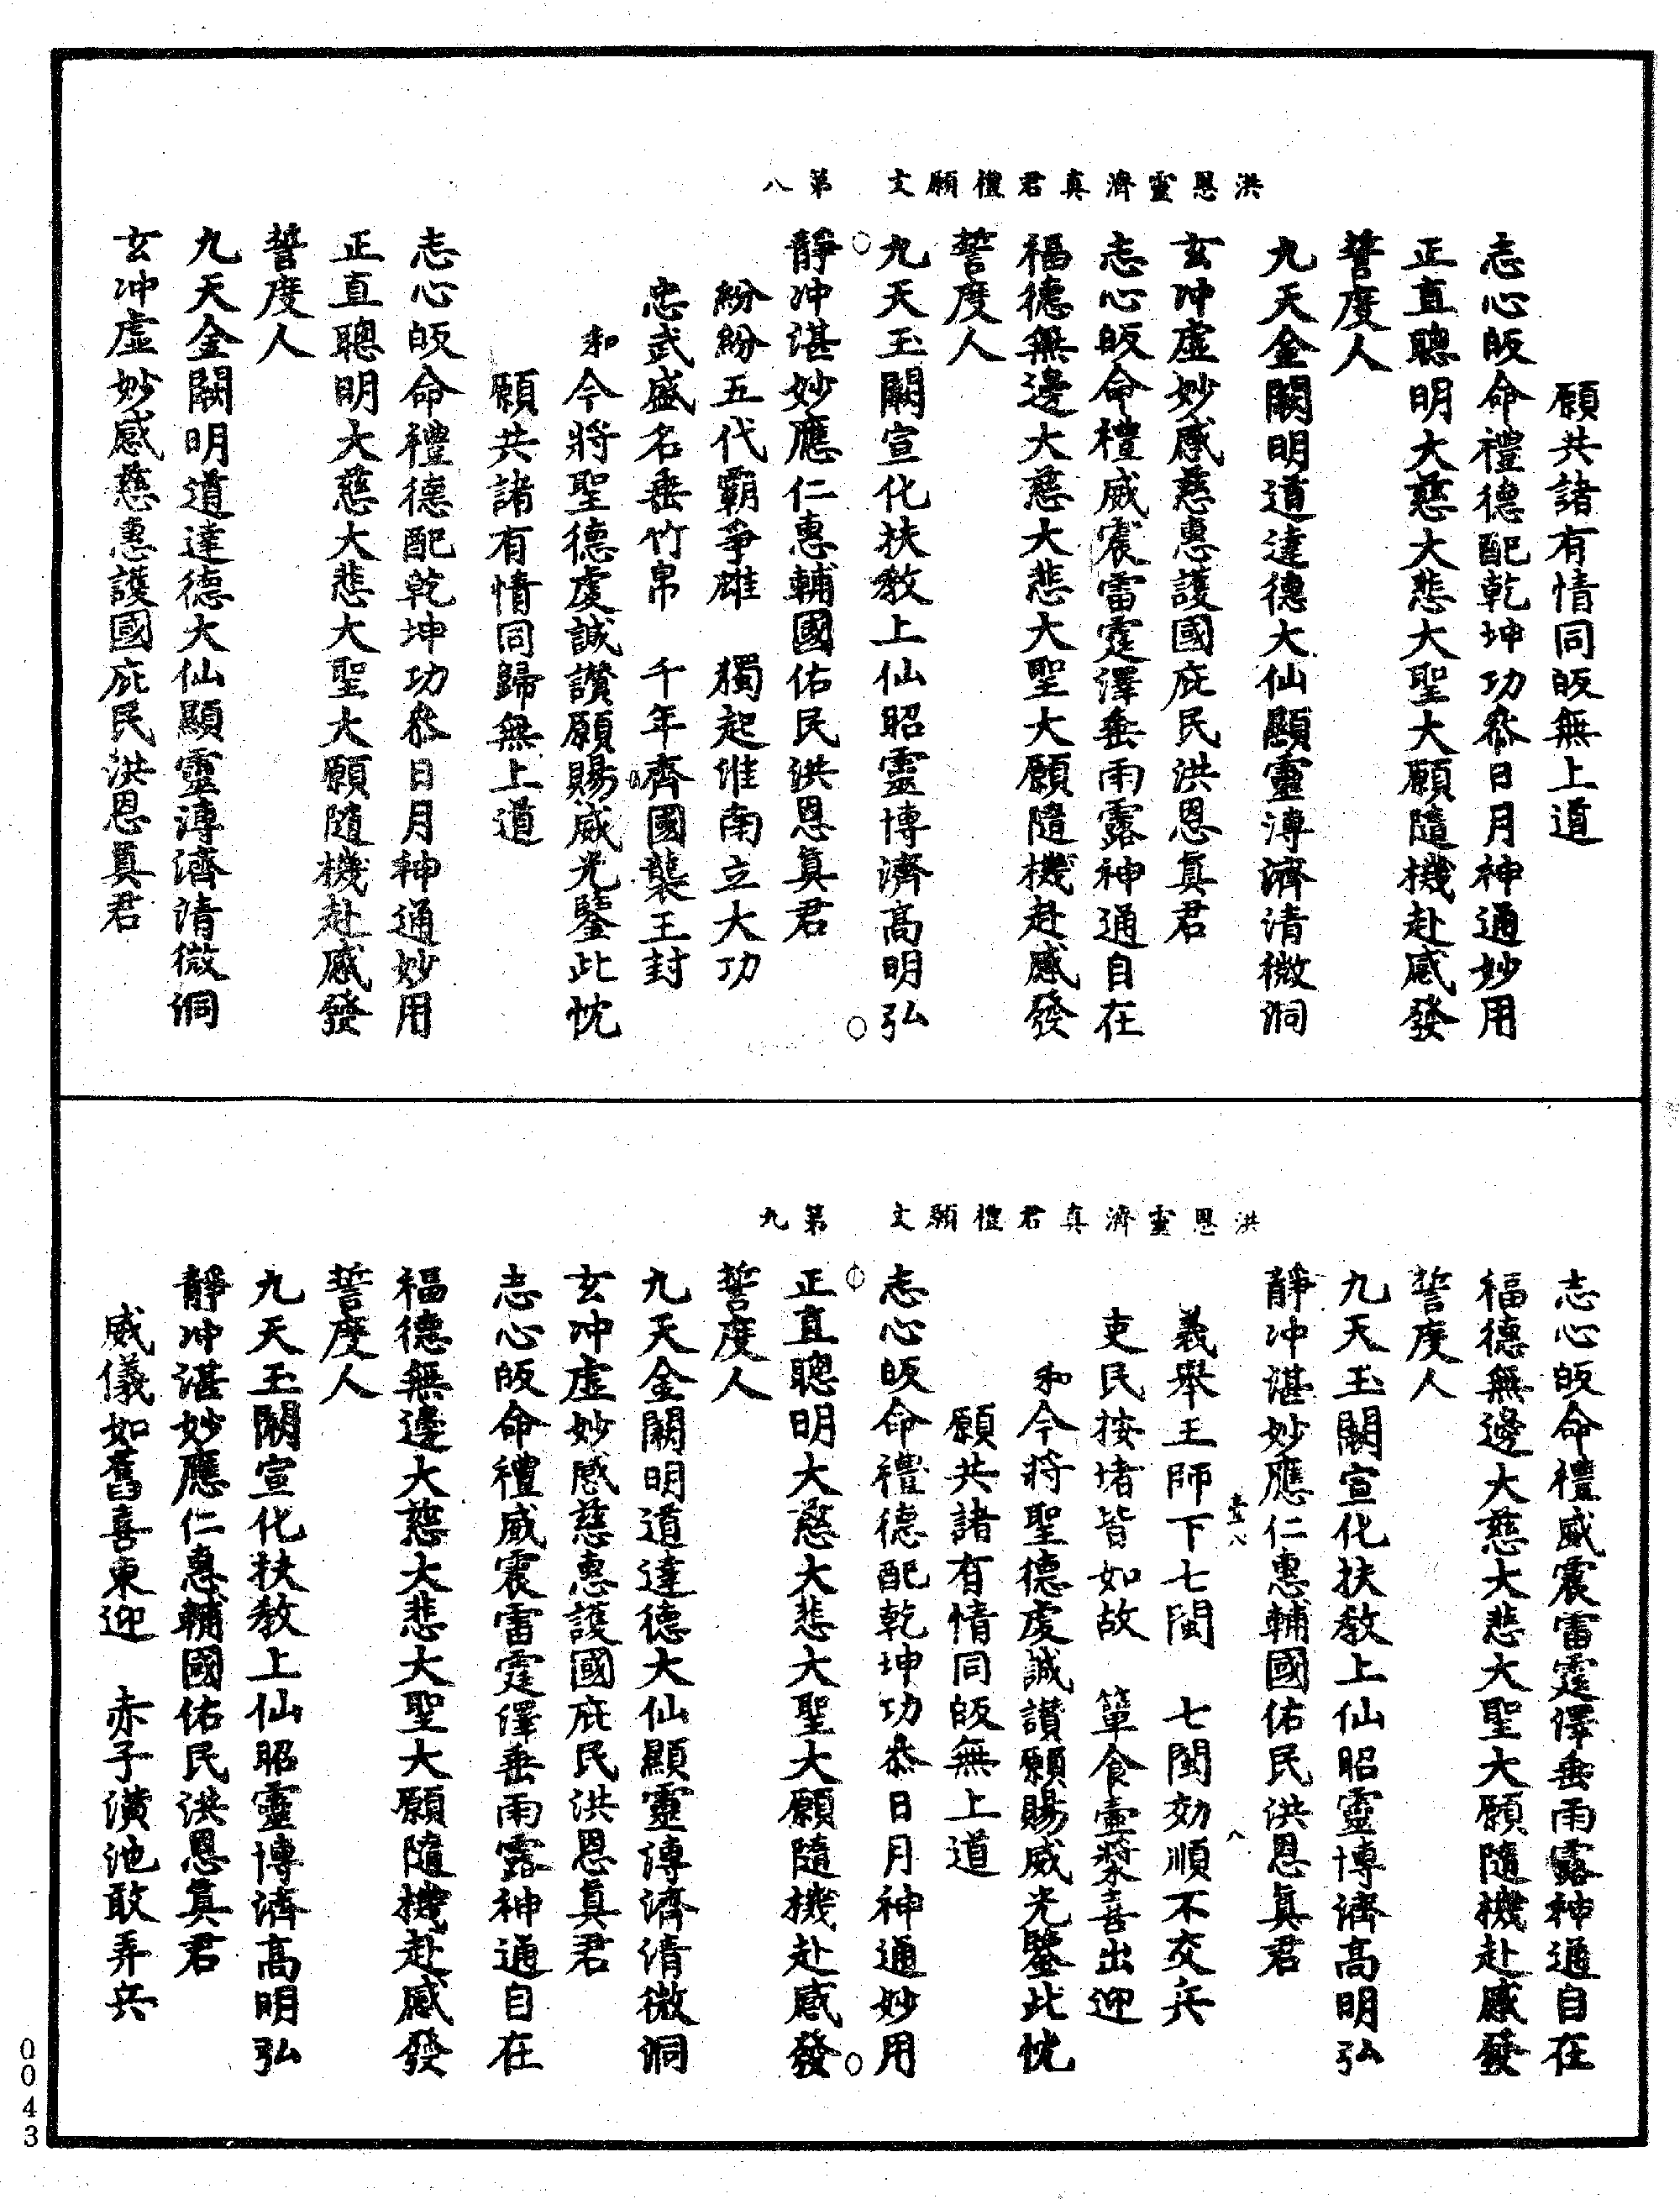 洪恩靈濟真君禮願文　第八
願共諸有情同皈無上道
志心皈命禮德配乾坤功叅日月神通妙用
正直聰明大慈大悲大聖大願隨機赴感發
誓度人
九天金闕明道達德大仙顯靈溥濟清微洞
玄冲虛妙感慈惠護國庇民洪恩真君
志心皈命禮威震雷霆澤垂雨露神通自在
福德無邊大慈大悲大聖大願隨機赴感發
誓度人
九天玉闕宣化扶教上仙昭靈博濟高明弘
靜冲湛妙應仁惠輔國佑民洪恩真君
紛紛五代霸爭雄　獨起淮南立大功
忠武盛名垂竹帛　千年齊國襲王封
和今將聖德虔誠讚願賜威光鑒此忱
願共諸有情同歸無上道
志心皈命禮德配乾坤功叅日月神通妙用
正直聰明大慈大悲大聖大願隨機赴感發
誓度人
九天金闕明道達德大仙顯靈溥濟清微洞
玄冲虛妙感慈惠護國庇民洪恩真君
洪恩靈濟真君禮願文　第九
志心皈命禮威震雷霆澤垂雨露神通自在
福德無邊大慈大悲大聖大願隨機赴感發
誓度人
九天玉闕宣化扶教上仙昭靈博濟高明弘
靜冲湛妙應仁惠輔國佑民洪恩真君
八
義舉王師下七閩　七閩効順不交兵
吏民按堵皆如故　簞食壷漿喜出迎
和今將聖德虔誠讚願賜威光鑒此忱
願共諸有情同皈無上道
志心皈命禮德配乾坤功叅日月神通妙用
正直聰明大慈大悲大聖大願隨機赴感發
誓度人
九天金闕明道達德大仙顯靈溥濟清微洞
玄冲虛妙感慈惠護國庇民洪恩真君
志心皈命禮威震雷霆澤垂雨露神通自在
福德無邊大慈大悲大聖大願隨機赴感發
誓度人
九天玉闕宣化扶教上仙昭靈博濟高明弘
靜冲湛妙應仁惠輔國佑民洪恩真君
威儀如舊喜東迎　赤子潢池敢弄兵
0043